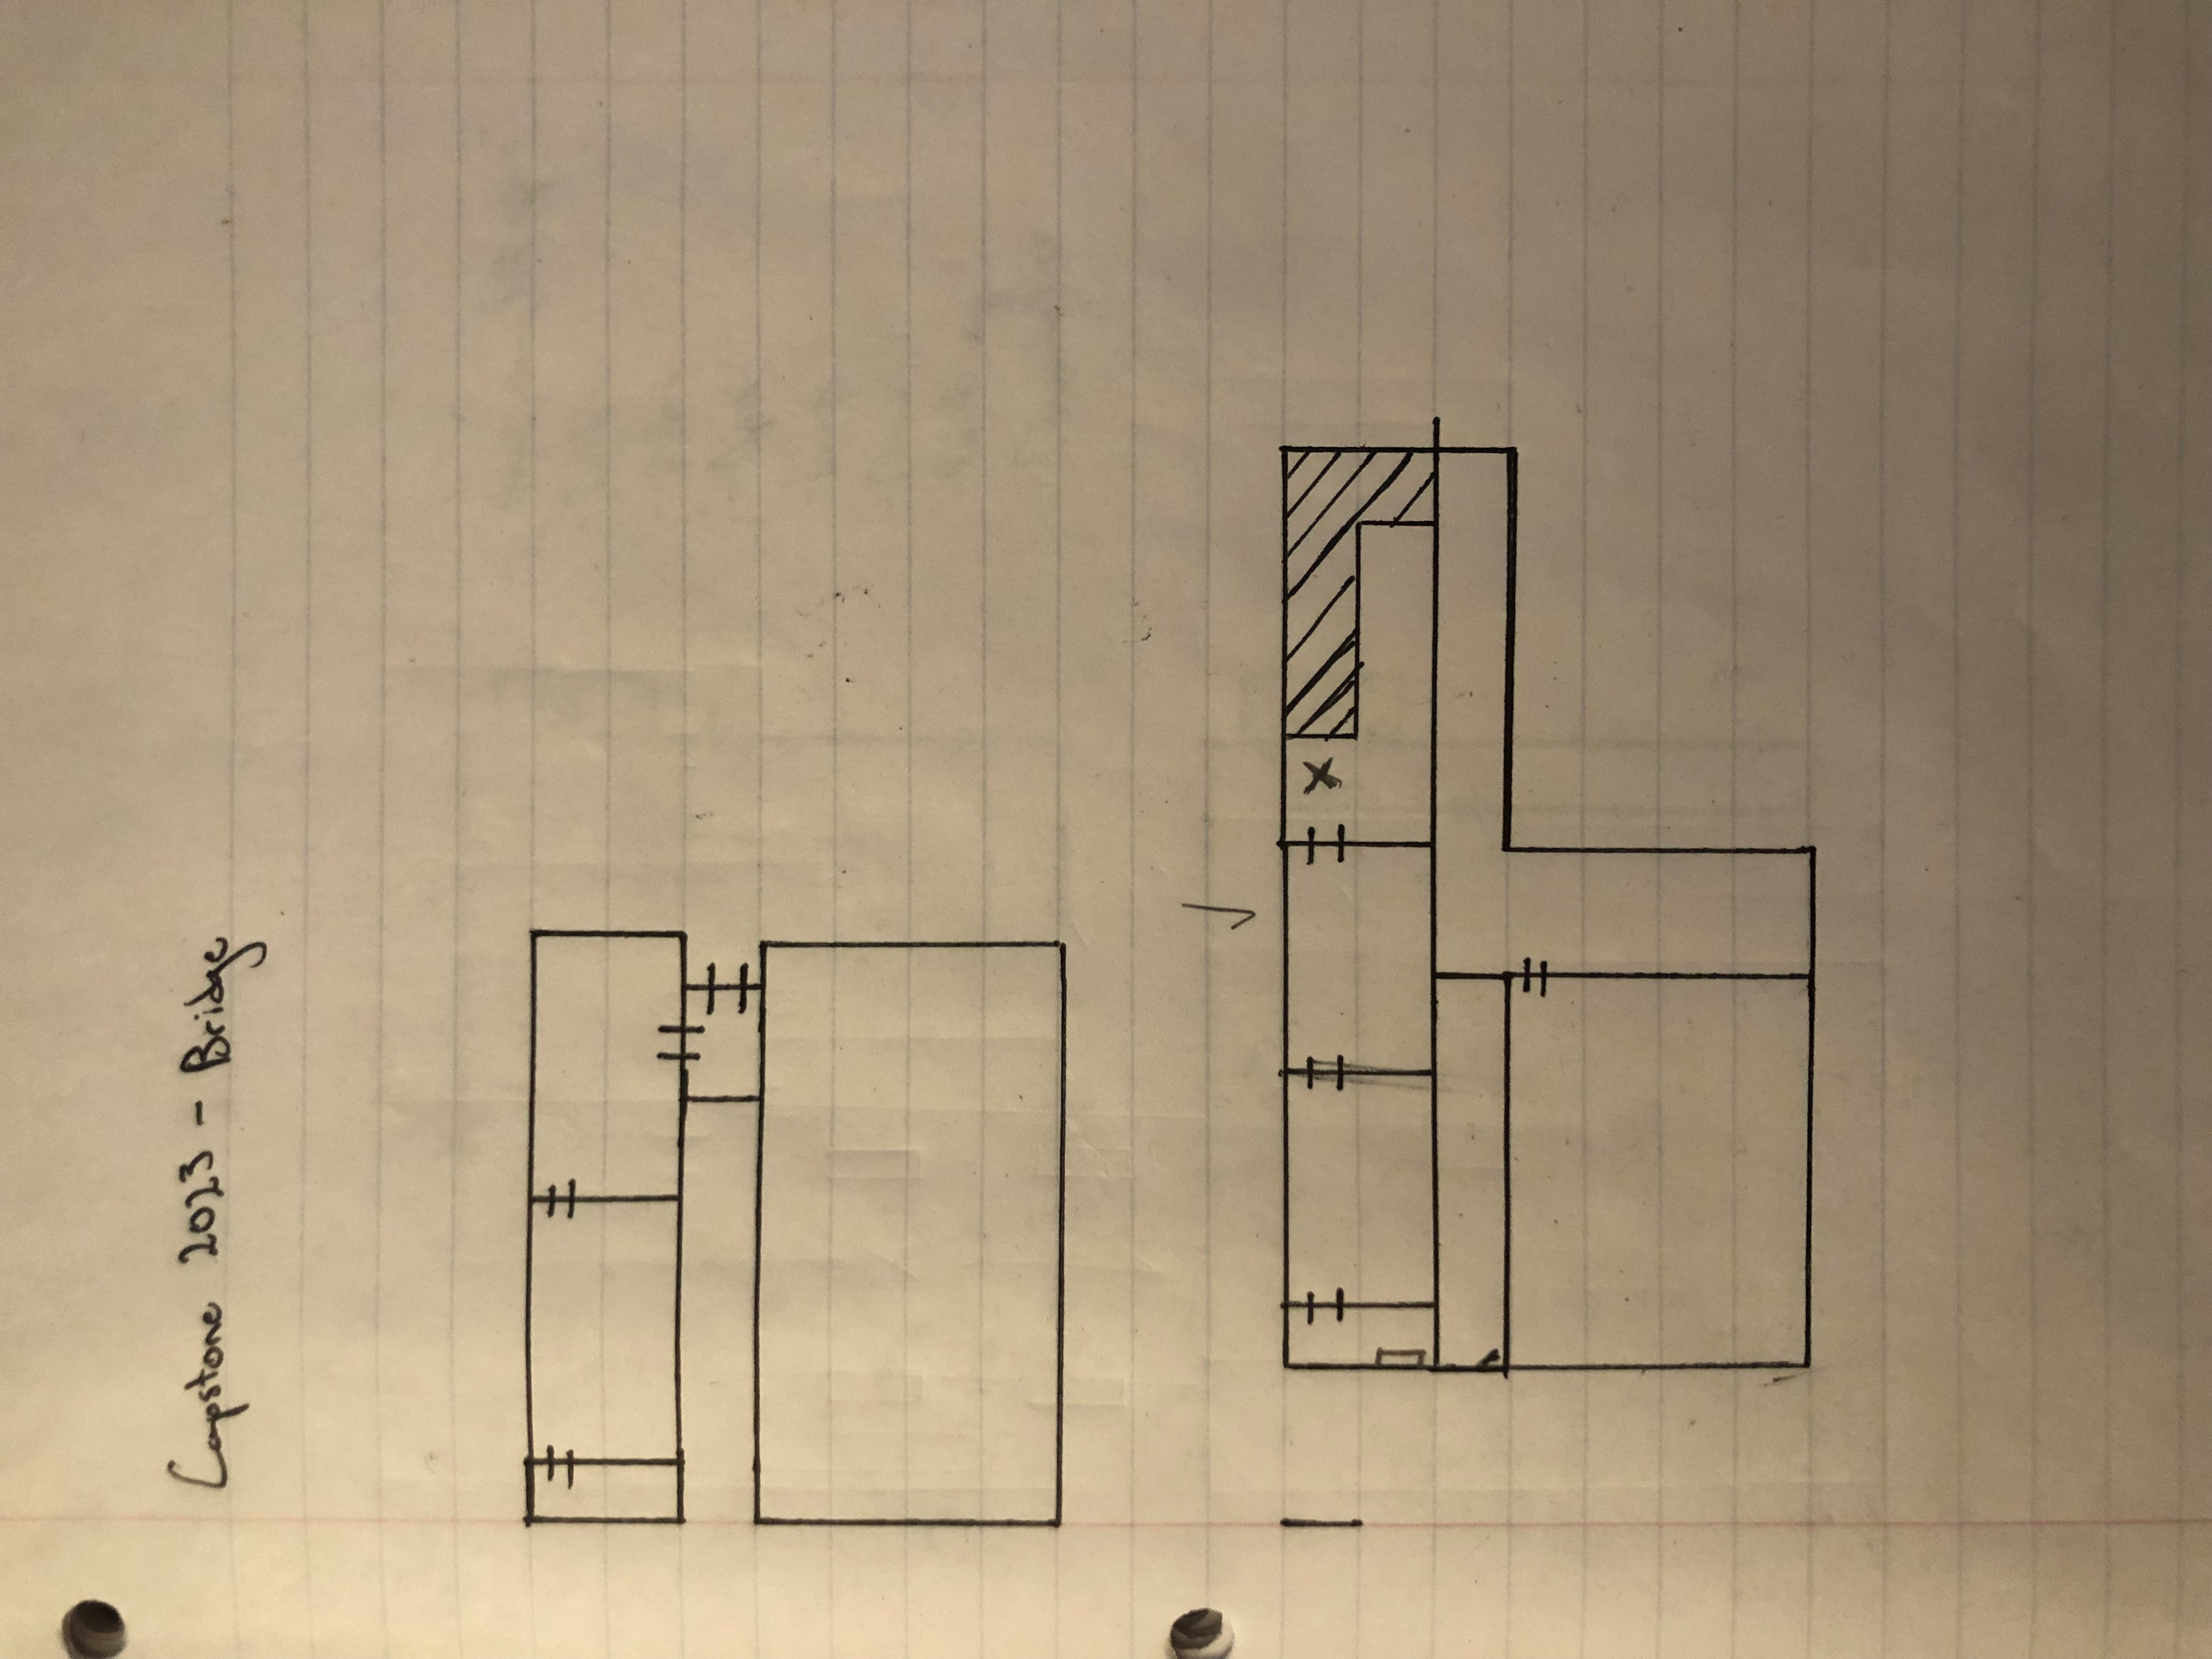 Capstone 2023 - Bridge